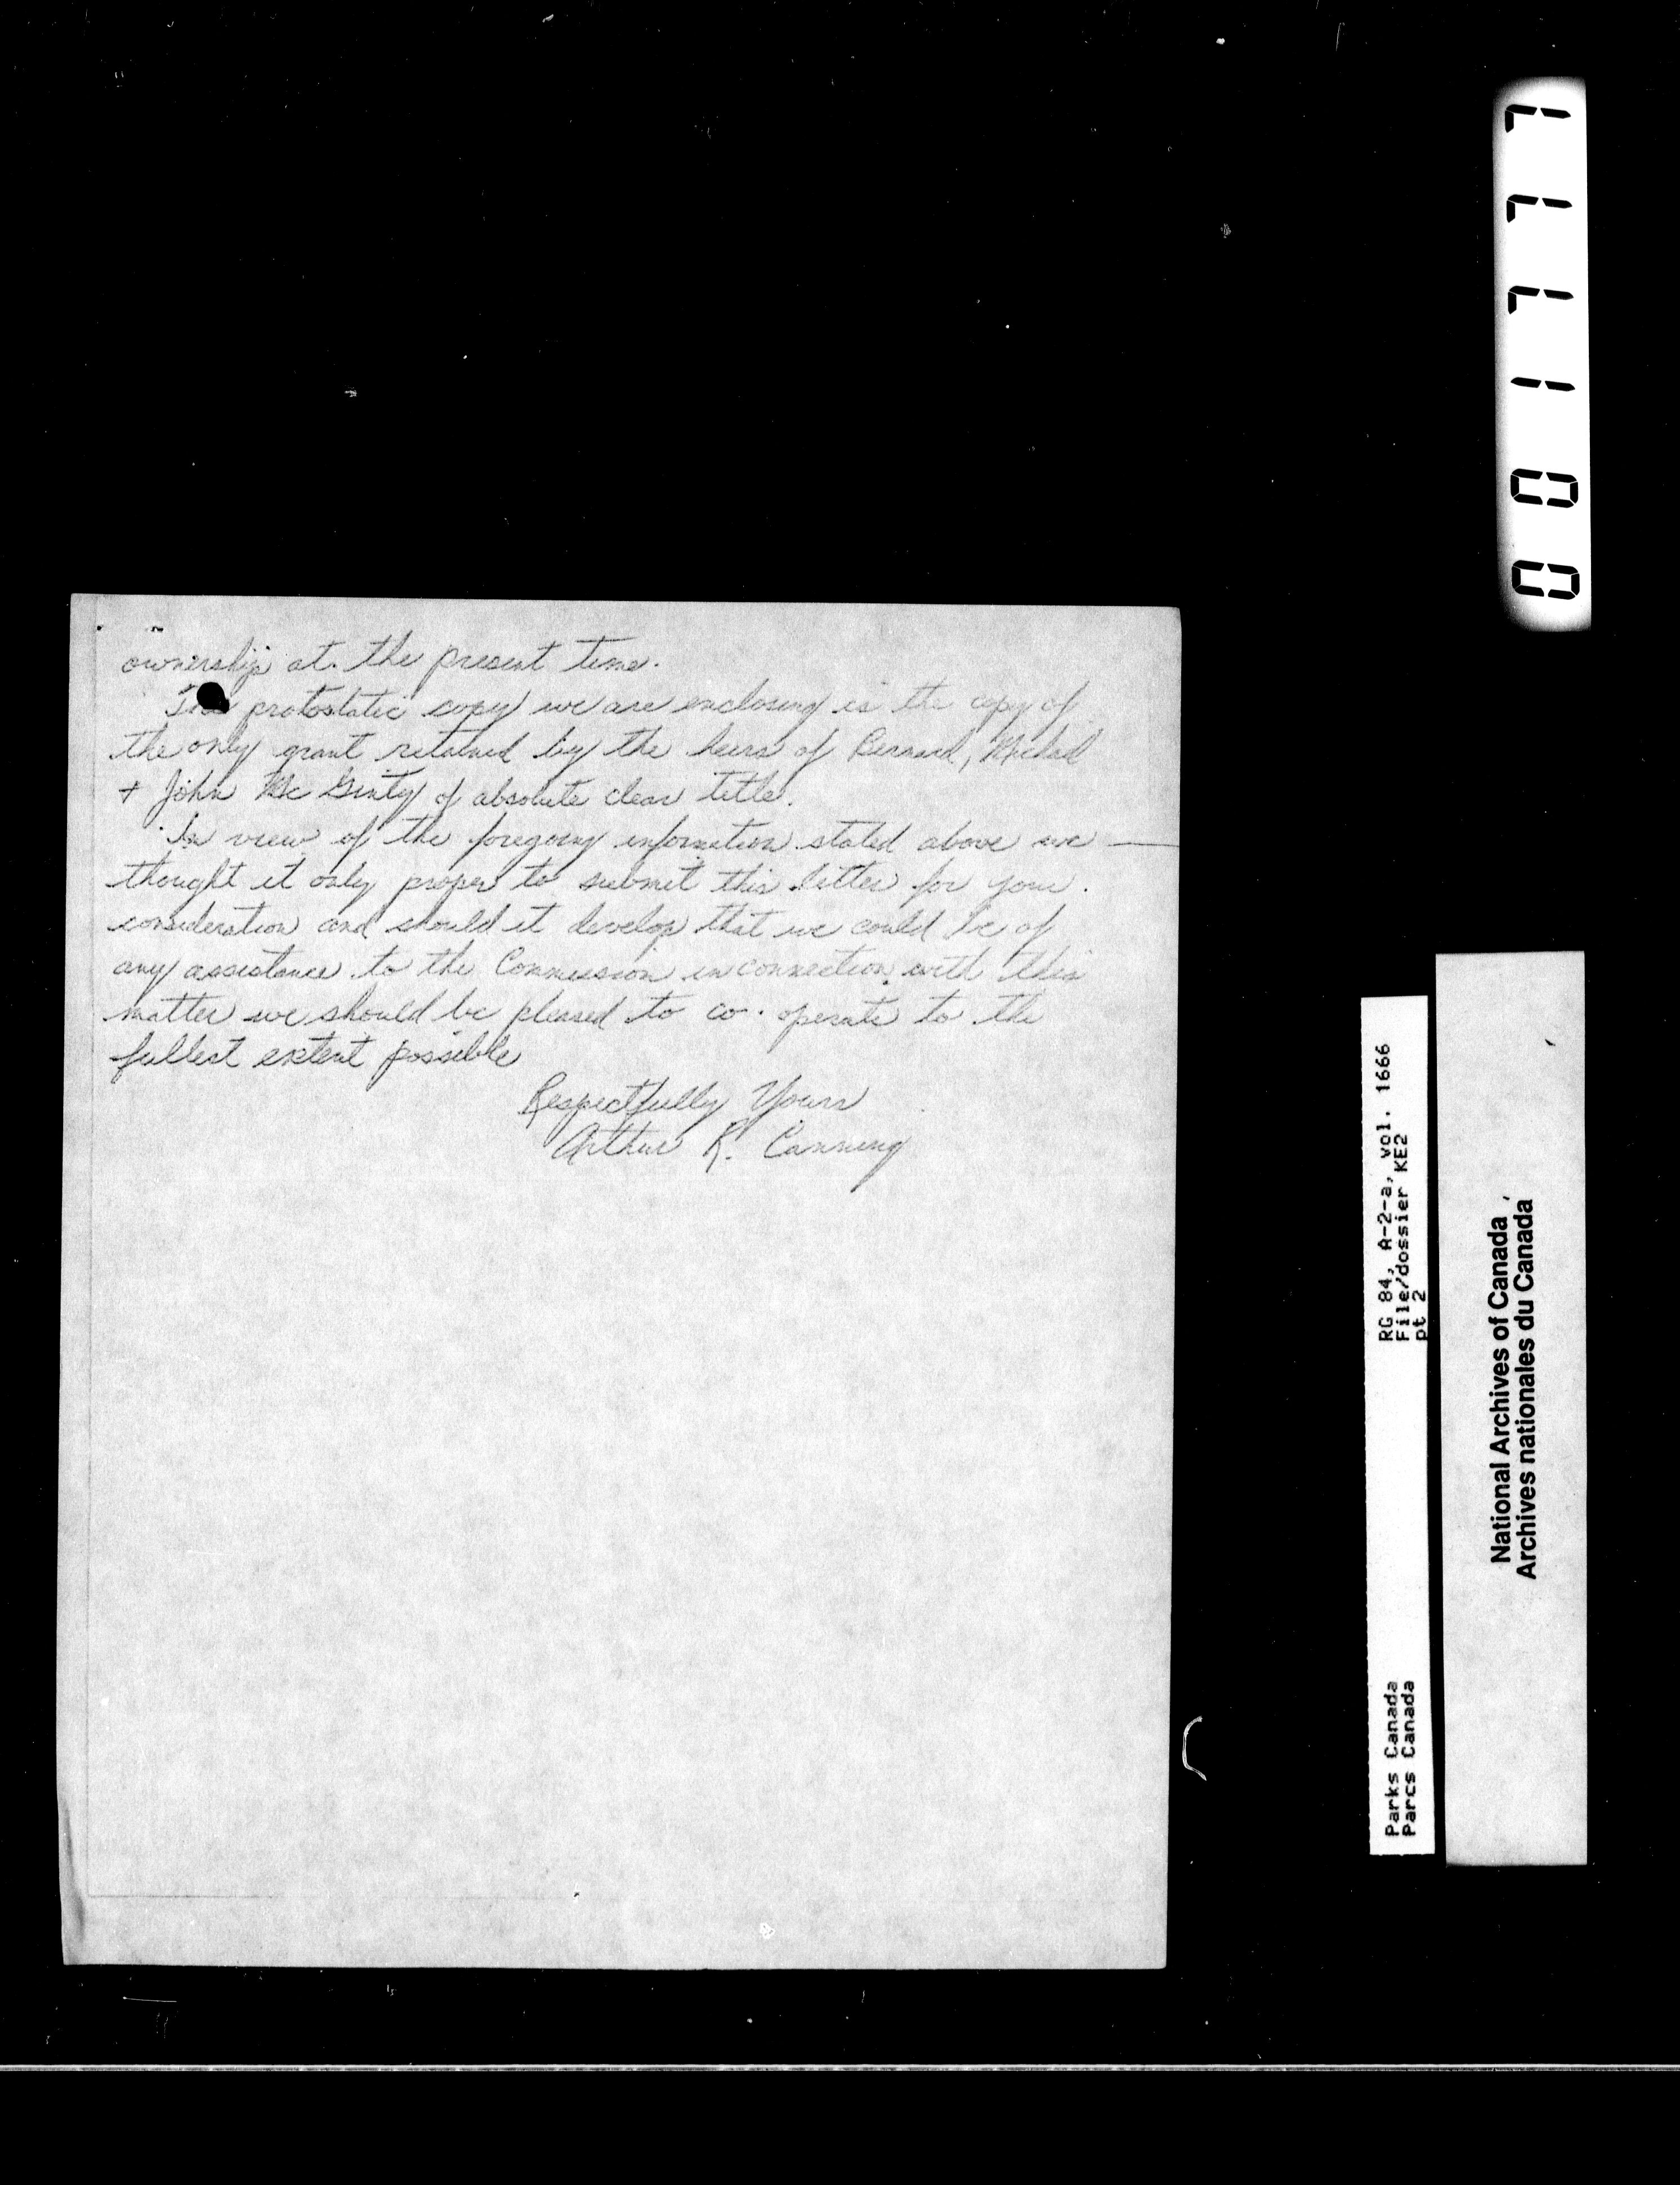 ownership at the present time.
The protostatic copy we are enclosing is the copy of
the only grant retained by the heirs of Bernard, Michael
+ John Mc Ginty of absolute clear title.
In view of the foregoing information stated above we
thought it only proper to submit this letter for your
consideration and should it develop that we could be of
any assistance to the Commission in connection with this
matter we should be pleased to co-operate to the
fullest extent possible
Respectfully Yours
Arthur R. Canning
001777
RG 84, A-2-a, vol. 1666
File/dossier KE2
pt 2
Parks Canada
Parcs Canada
National Archives of Canada
Archives nationales du Canada